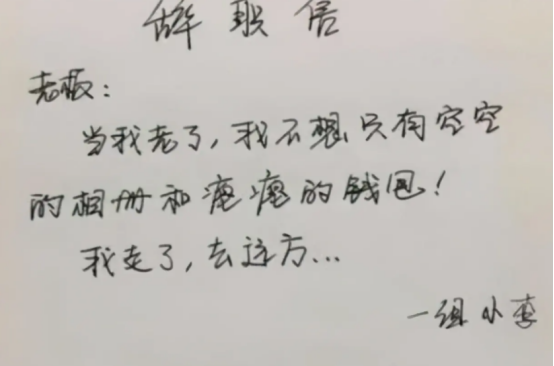 辞职信
老板：
当我老了，我不想只有空空
的相册和瘪瘪的钱包！
我走了，去远方...
一组小李